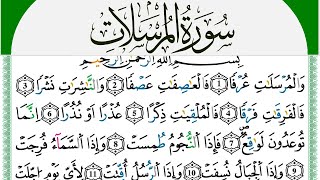 سورة المرسلات
بِسْمِ اللَّهِ الرَّحْمَٰنِ الرَّحِيمِ
وَالْمُرْسَلَاتِ عُرْفًا ١ فَالْعَاصِفَاتِ عَصْفًا ٢ وَالنَّاشِرَاتِ نَشْرًا ٣
فَالْفَارِقَاتِ فَرْقًا ٤ فَالْمُلْقِيَاتِ ذِكْرًا ٥ عُذْرًا أَوْ نُذْرًا ٦ إِنَّمَا
تُوعَدُونَ لَوَاقِعٌ ٧ فَإِذَا النُّجُومُ طُمِسَتْ ٨ وَإِذَا السَّمَاءُ فُرِجَتْ
٩ وَإِذَا الْجِبَالُ نُسِفَتْ ١٠ وَإِذَا الرُّسُلُ أُقِّتَتْ ١١ لِأَيِّ يَوْمٍ أُجِّلَتْ